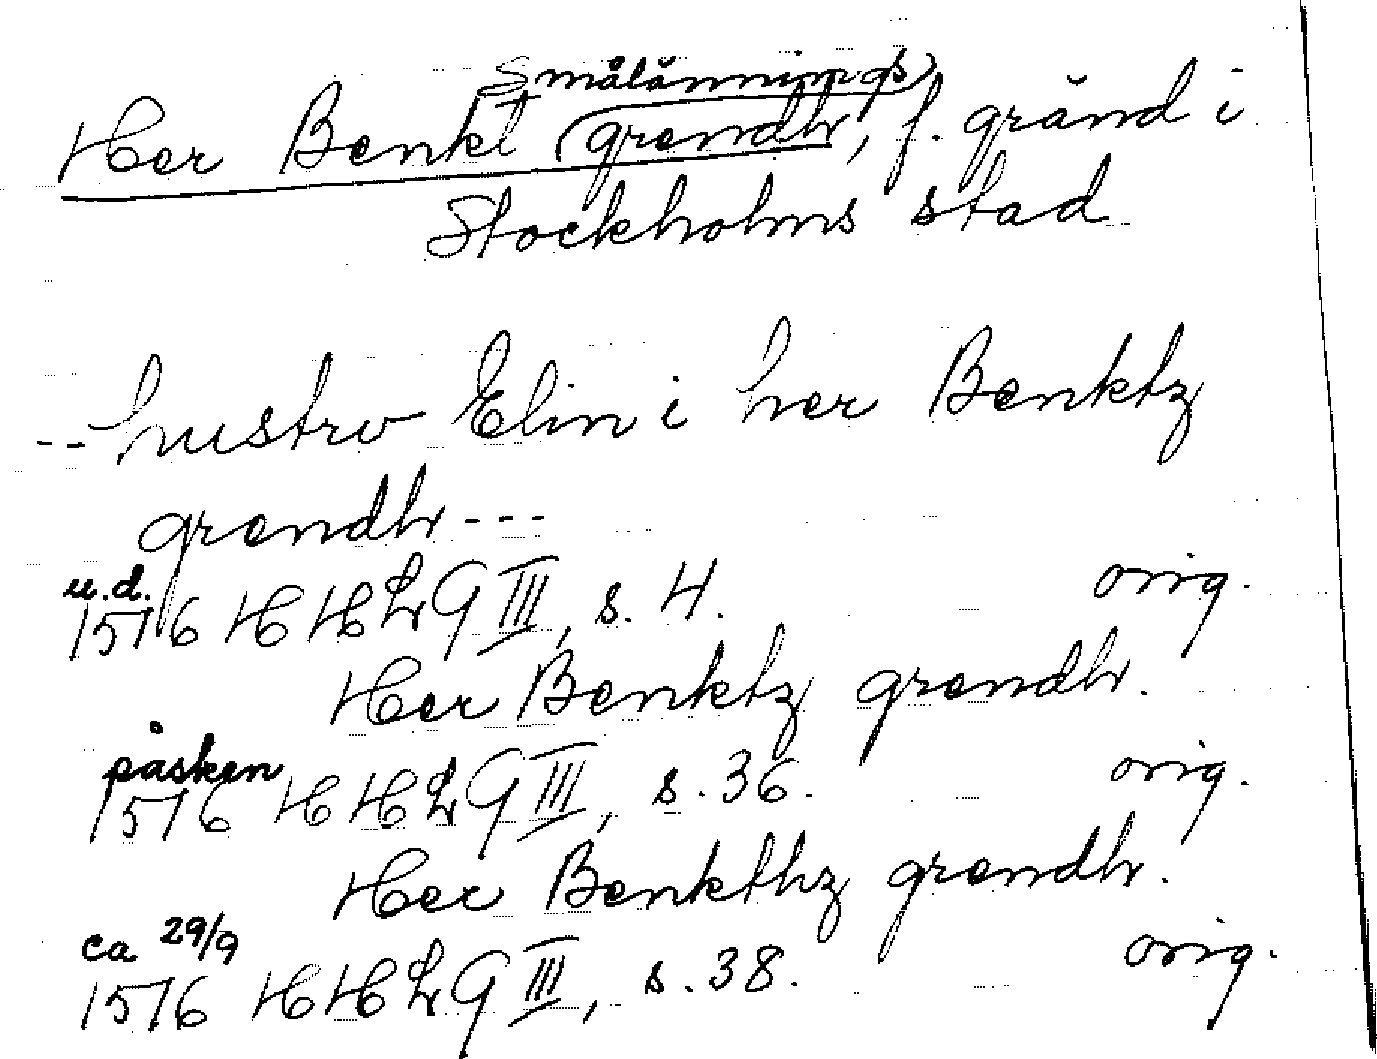 Smålännings
Her Benkt (grendh, f. gränd i
Stockholms stad
-- hustrv Elin i her Benktz
grendh ---
u.d.
1576 HHLG III, s. 4. orig.
Her Benktz grendh.
påsken
1576 HHLG III, s. 36. orig.
Her Benkthz grendh.
ca 29/9
1576 HHLG III, s. 38. orig.